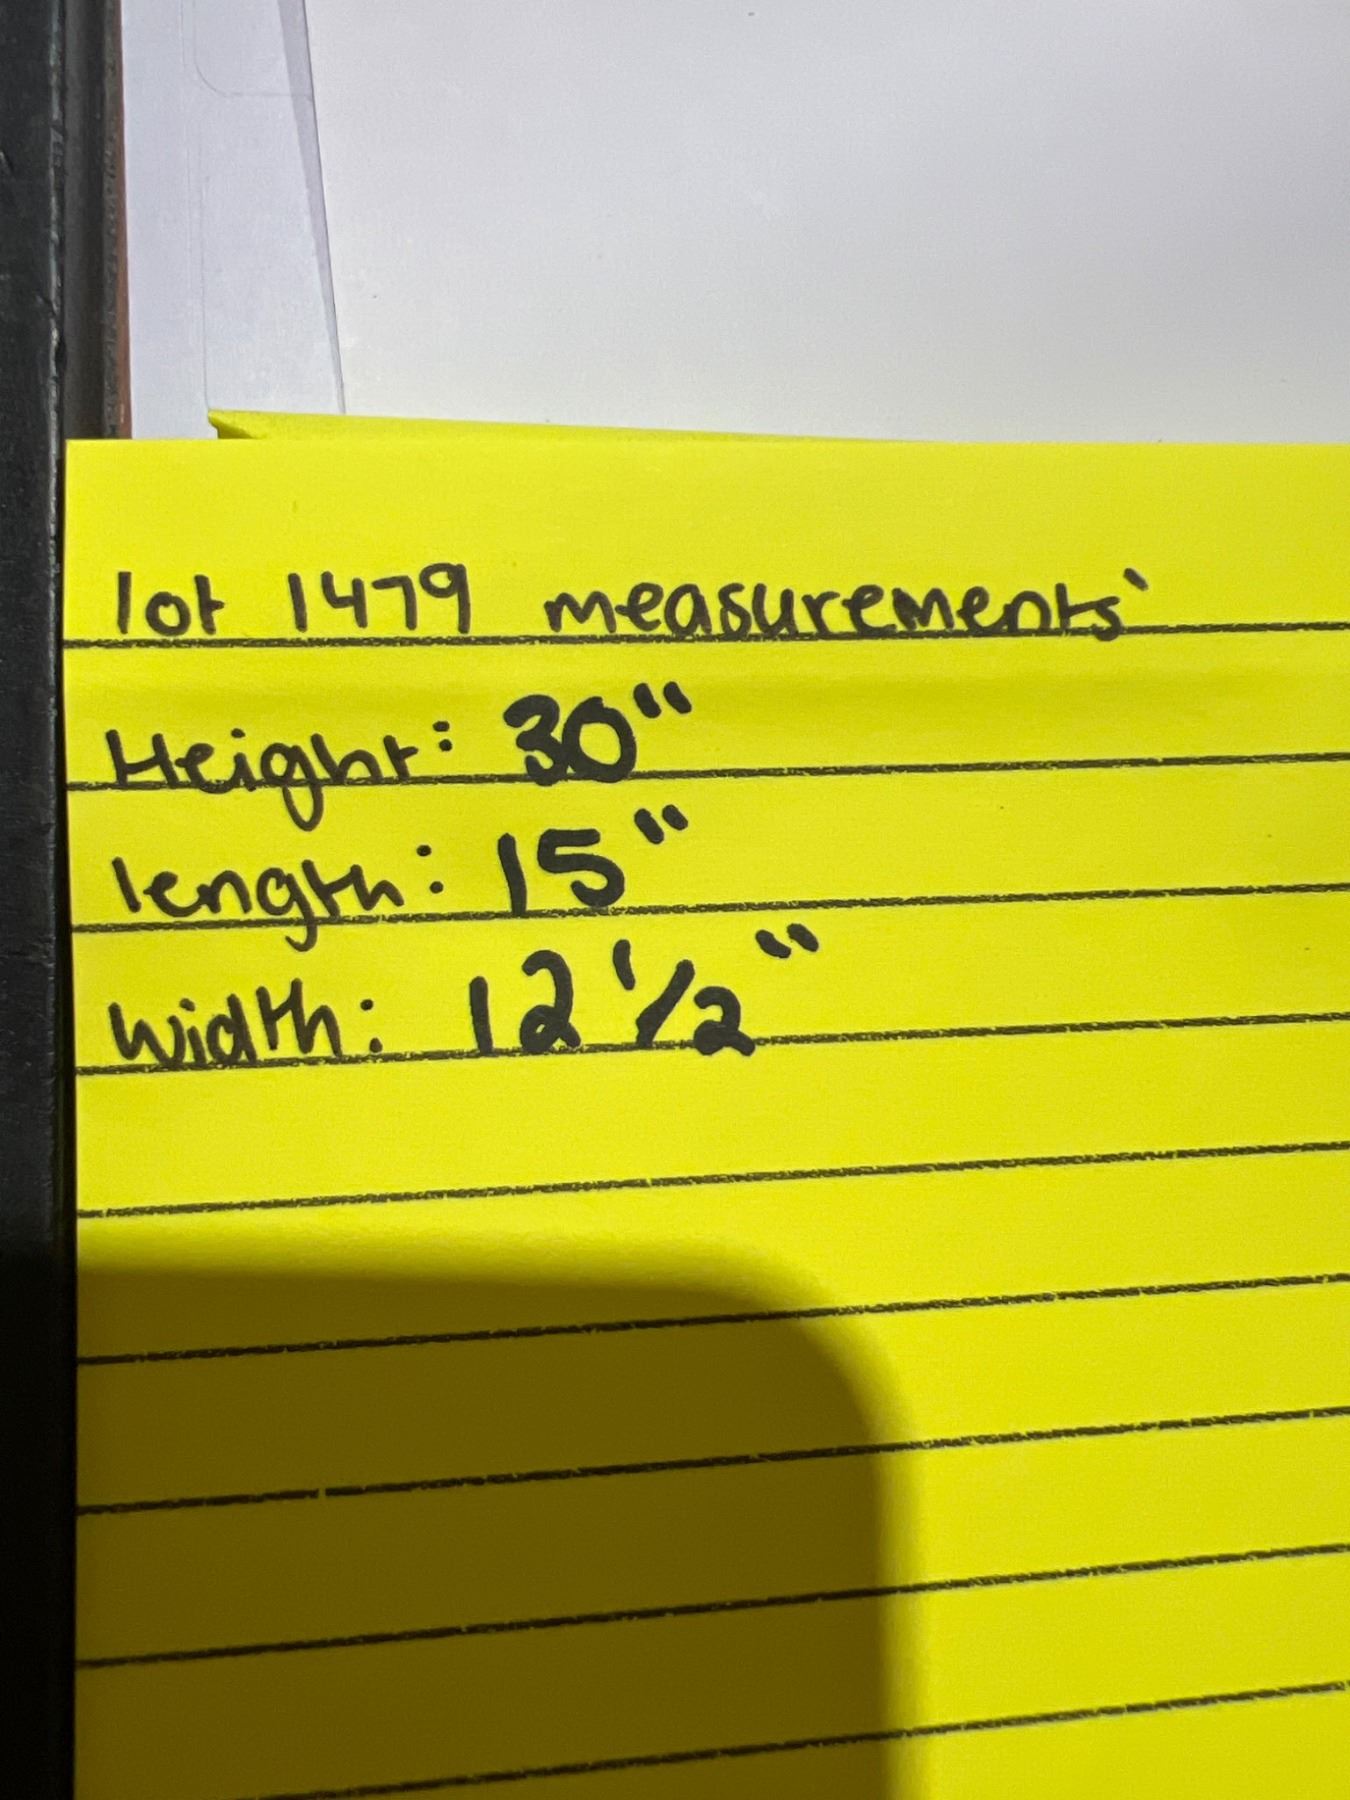 lot 1479 measurements`
Height: 30"
length: 15"
Width: 12 1/2"